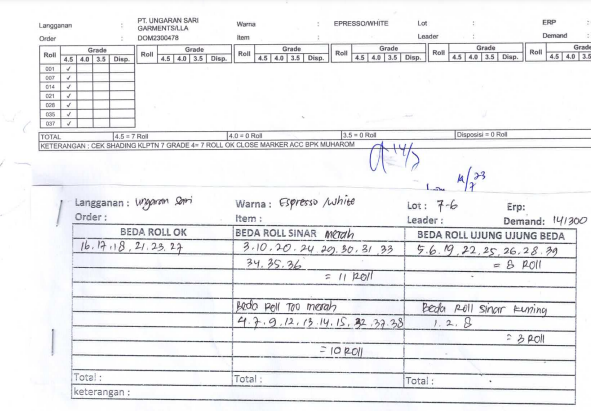 Langganan : PT. UNGARAN SARI GARMENTS/LLA Warna : EPRESSO/WHITE Lot : ERP :
Order : DOM2300478 Item : Leader : Demand :
Roll Grade Roll Grade Roll Grade Roll Grade Roll Grade
4.5 4.0 3.5 Disp. 4.5 4.0 3.5 Disp. 4.5 4.0 3.5 Disp. 4.5 4.0 3.5 Disp. 4.5 4.0 3.5
001 ✓
007 ✓
014 ✓
021 ✓
028 ✓
035 ✓
037 ✓
TOTAL 4.5 = 7 Roll 4.0 = 0 Roll 3.5 = 0 Roll Disposisi = 0 Roll
KETERANGAN : CEK SHADING KLPTN 7 GRADE 4= 7 ROLL OK CLOSE MARKER ACC BPK MUHAROM
14/7
14/7 23
Langganan : Ungaran Sari Warna : Espresso/white Lot : 7-6 Erp:
Order : Item : Leader : Demand: 141300
BEDA ROLL OK BEDA ROLL SINAR merah BEDA ROLL UJUNG UJUNG BEDA
16.17.18, 21.23.27 3.10.20.24 29.30.31.33 5.6.19,22,25,26.28.39
34.35.36 = 8 Roll
= 11 Roll
Beda Roll Too merah Beda Roll Sinar Kuning
4.7.9,12,13.14.15,32.37.38 1.2.8
= 3 Roll
= 10 Roll
Total : Total : Total :
keterangan :